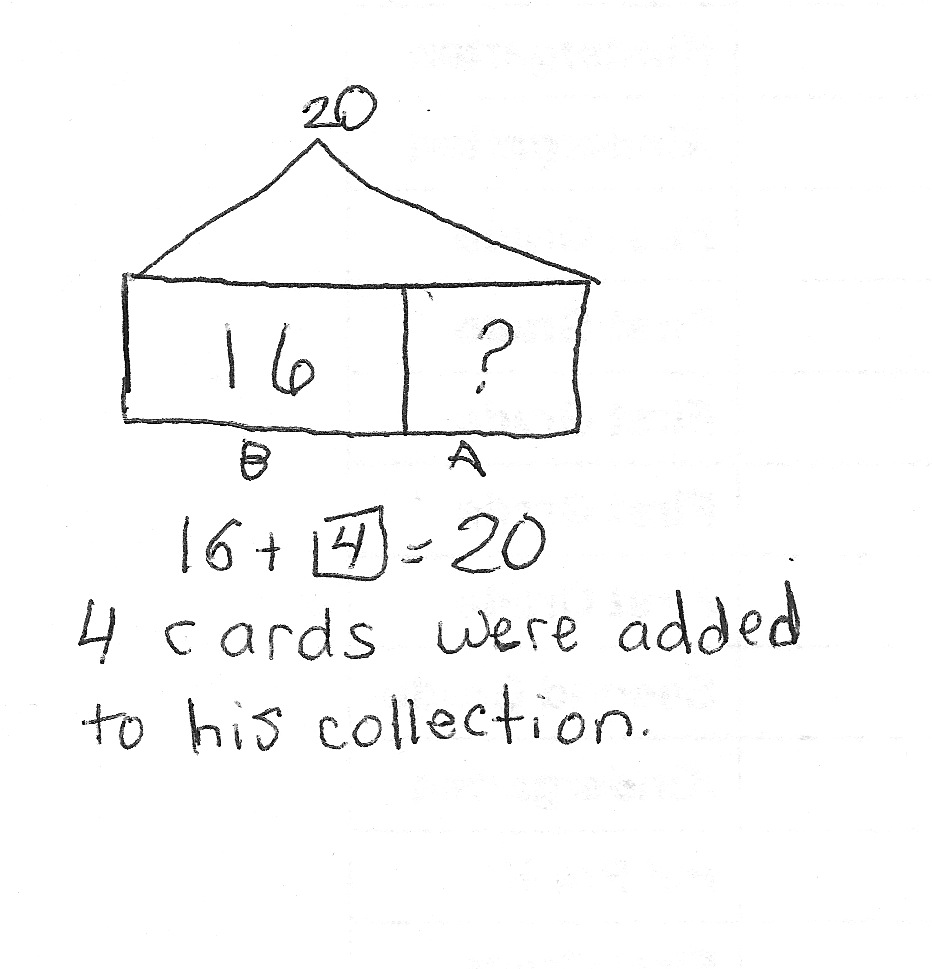 20
16 ?
B A
16 + 4 = 20
4 cards were added
to his collection.